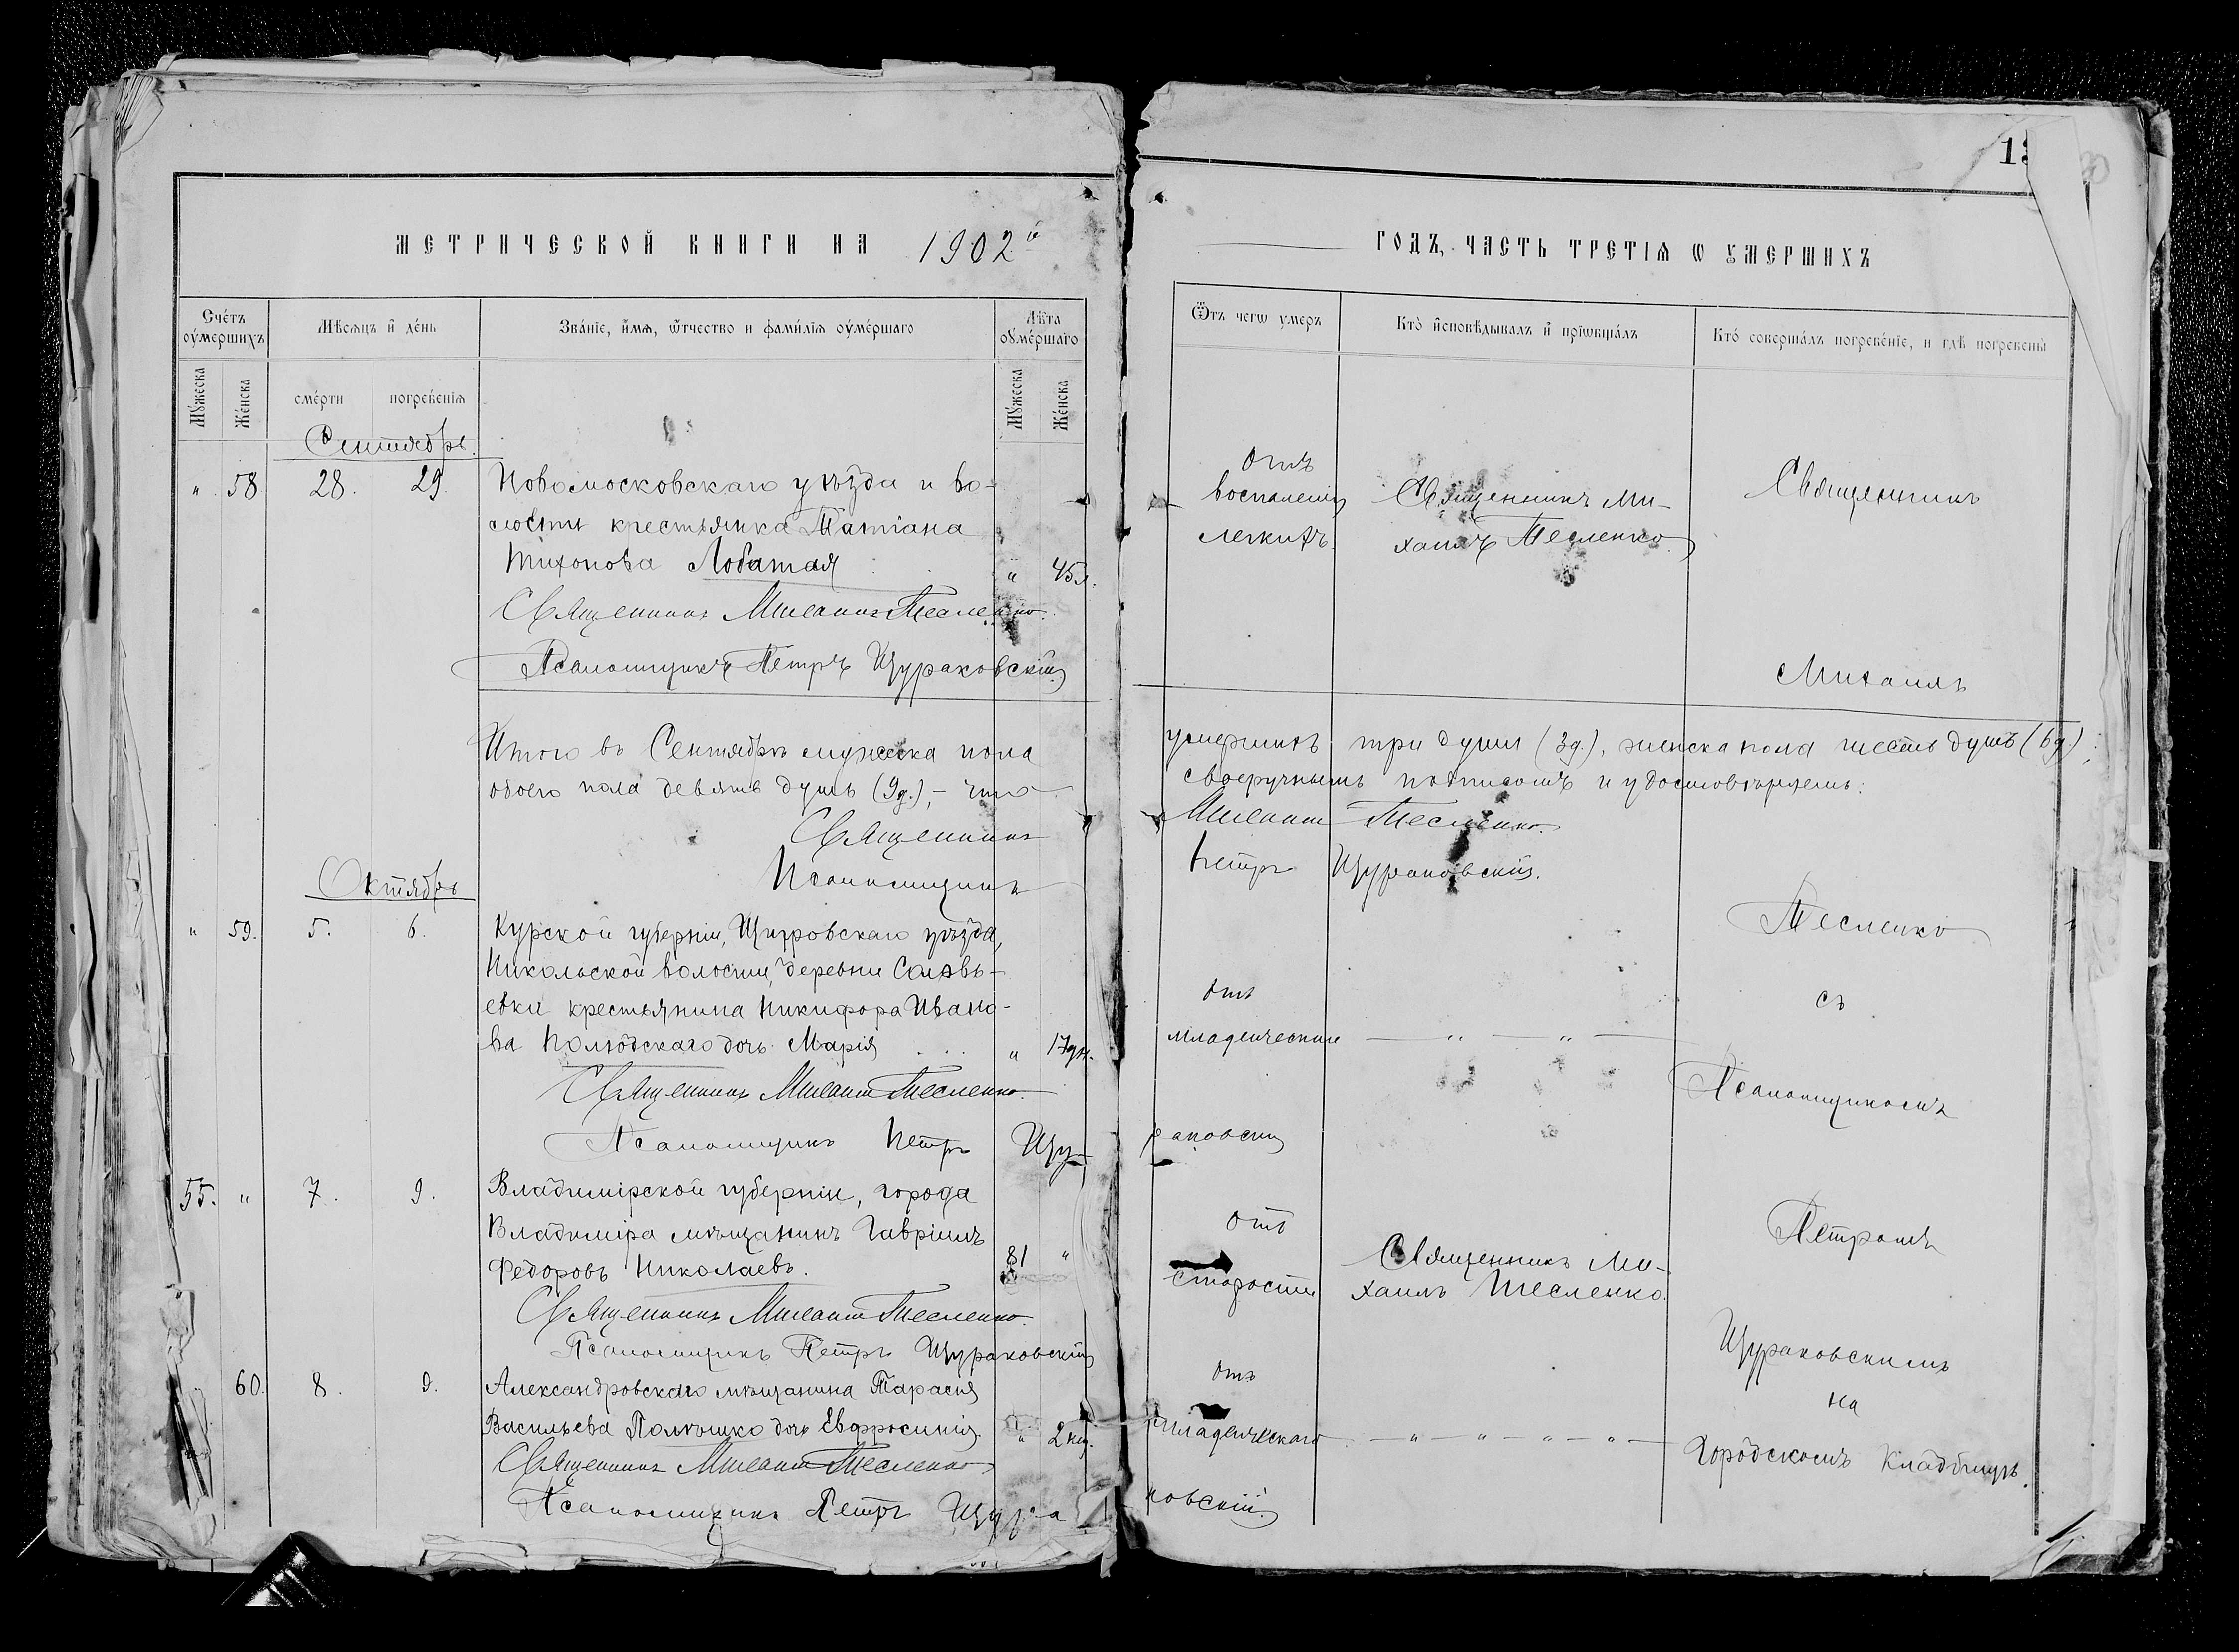 МЕТРИЧЕСКОЙ КНИГИ НА 1902й
Счетъ оумершихъ
Мѣсяцъ и день
Званіе, имя, отчество и фамилія оумершаго
Лѣта оумершаго
Мужеска
Женска
смерти
погребенія
Мужеска
Женска
Сентябрь.
" 58 28. 29. Новомосковскаго уѣзда и во-
лости крестьянка Татіана
Тихонова Лобатая " 45 л.
Священникъ Михаилъ Тесленко.
Псаломщикъ Петръ Щураковскій
Итого въ Сентябрѣ мужеска пола
обоего пола девять душъ (9 д.), – что
Священникъ
Псаломщикъ
Октябрь
" 59. 5. 6. Курской губерніи, Щигровскаго уѣзда,
Никольской волости, деревни Соловь-
евки крестьянина Никифора Ивано-
ва дочь Марія . . . " 17 дн.
Священникъ Михаилъ Тесленко.
Псаломщикъ Петръ Щу-
55. " 7. 9. Владимірской губерніи, города
Владиміра мѣщанинъ Гавріилъ
Федоровъ Николаевъ. 81 "
Священникъ Михаилъ Тесленко.
Псаломщикъ Петръ Щураковскій
60. 8. 9. Александровскаго мѣщанина Тарасія
Васильева дочь Евфросинія. "
Священникъ Михаилъ Тесленко
Псаломщикъ Петръ Щура
13
ГОДЪ, ЧАСТЬ ТРЕТІЯ Ѡ УМЕРШИХЪ
Ѿтъ чегѡ умеръ
Кто исповѣдывалъ и пріѡбщалъ
Кто совершалъ погребеніе, и гдѣ погребены
отъ
воспаленія
легкихъ.
Священникъ Ми-
хаилъ Тесленко.
Священникъ
Михаилъ
умершихъ три души (3 д.), женска пола шесть душъ (6 д.);
своеручнымъ подписомъ и удостовѣряемъ:
Михаилъ Тесленко.
Петръ Щураковскій.
Тесленко
отъ
младенческаго — " — " —
съ
Псаломщикомъ
раковскій
отъ
старости
Священникъ Ми-
хаилъ Тесленко.
Петромъ
Щураковскимъ
отъ
младенческаго — " — " — " — " —
на
Городскомъ Кладбищѣ.
ковскій.